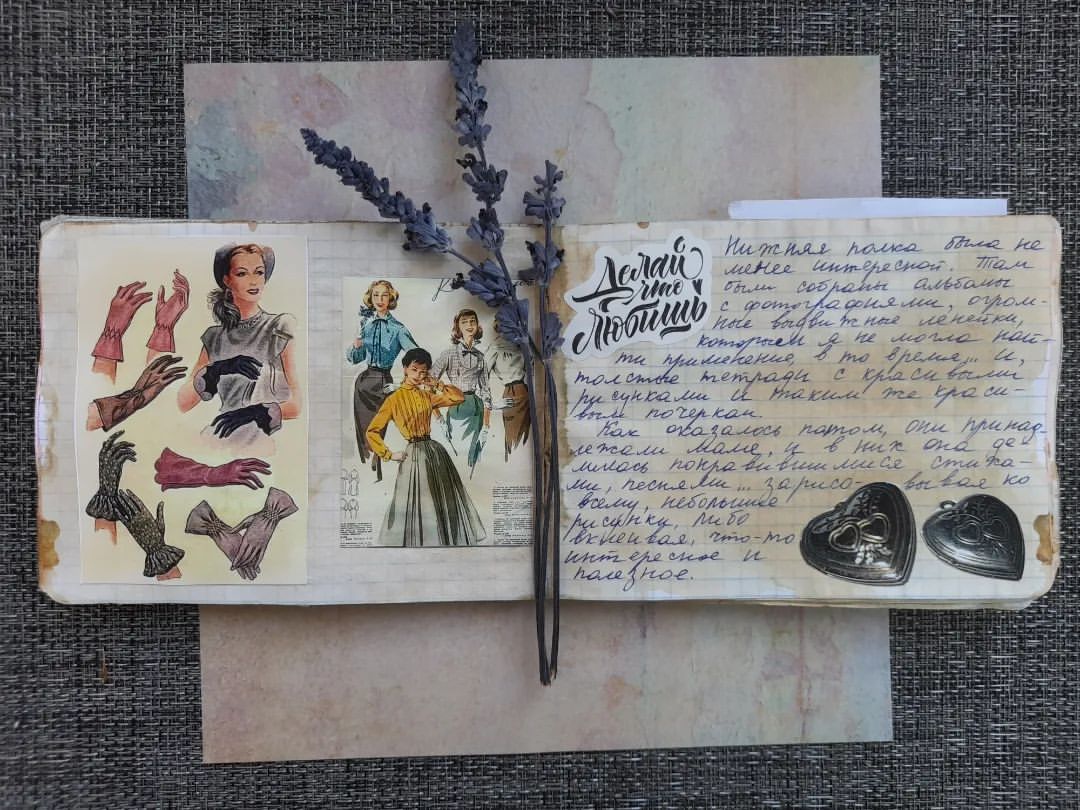 Делай
что
Любишь
Нижняя полка была не
менее интересной. Там
были собраны альбомы
с фотографиями, огром-
ные выдвижные линейки,
которым я не могла най-
ти применение, в то время... и,
толстые тетради с красивыми
рисунками и таким же краси-
вым почерком.
Как оказалось потом, они принад
лежали маме, и в них она де-
лилась понравившимися стиха-
ми, песнями... зарисо- вывая ко
всему, небольшие
рисунки, либо
вклеивая, что-то
интересное и
полезное.